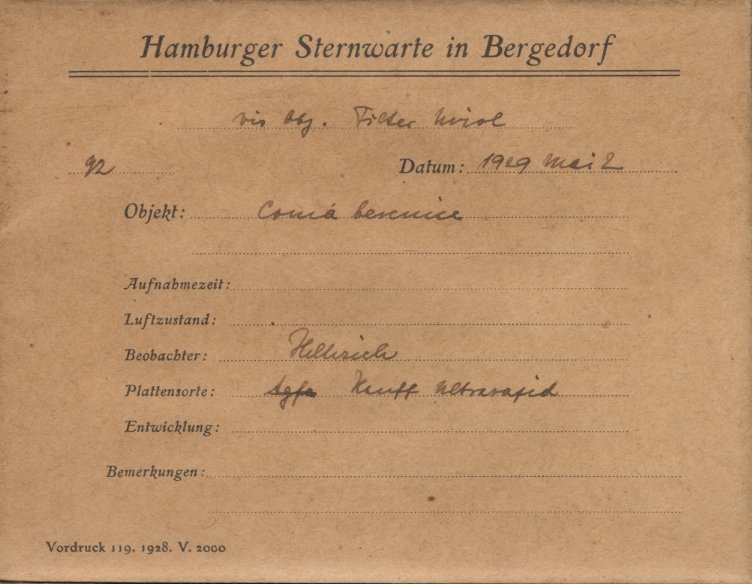 Hamburger Sternwarte in Bergedorf
vis Obj. Filter
92 Datum: 1929 Mai 2
Objekt: Coma berenice
Aufnahmezeit:
Luftzustand:
Beobachter: Hellerich
Plattensorte: Agfa Hauff Ultrarapid
Entwicklung:
Bemerkungen:
Vordruck 119. 1928. V. 2000